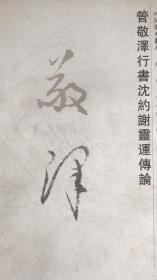 管敬澤行書沈約謝靈運傳論
敬澤